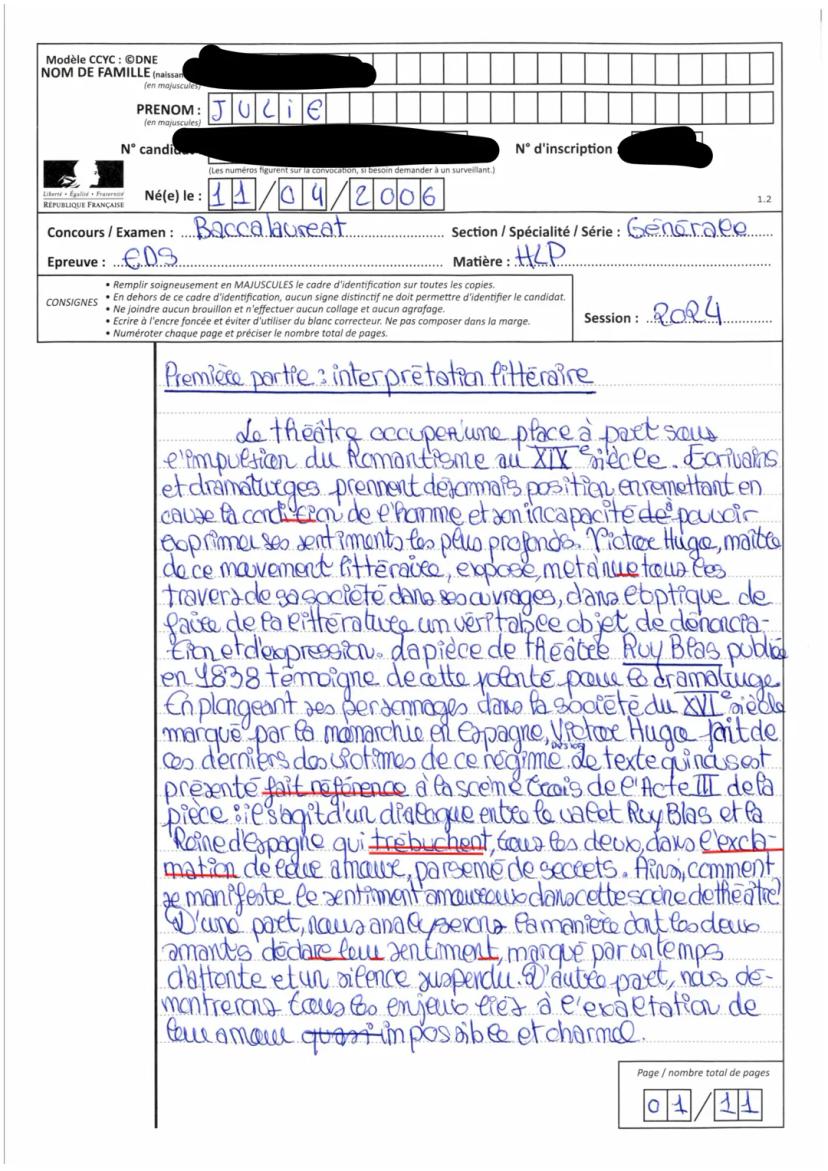 Modèle CCYC : ©DNE
NOM DE FAMILLE (naissan
(en majuscules)
PRENOM : JULIE
(en majuscules)
N° candid
N° d'inscription
(Les numéros figurent sur la convocation, si besoin demander à un surveillant.)
Liberté • Égalité • Fraternité
RÉPUBLIQUE FRANÇAISE
Né(e) le : 11/04/2006
1.2
Concours / Examen : Baccalaureat Section / Spécialité / Série : Générale
Epreuve : EDS Matière : HLP
CONSIGNES
• Remplir soigneusement en MAJUSCULES le cadre d'identification sur toutes les copies.
• En dehors de ce cadre d'identification, aucun signe distinctif ne doit permettre d'identifier le candidat.
• Ne joindre aucun brouillon et n'effectuer aucun collage et aucun agrafage.
• Ecrire à l'encre foncée et éviter d'utiliser du blanc correcteur. Ne pas composer dans la marge.
• Numéroter chaque page et préciser le nombre total de pages.
Session : 2024
Première partie : interprétation littéraire
Le théâtre occupe une place à part sous
l'impulsion du Romantisme au XIXe siècle. Ecrivains
et dramaturges prennent désormais position en remettant en
cause la condition de l'homme et son incapacité à pouvoir
exprimer ses sentiments les plus profonds. Victor Hugo, maître
de ce mouvement littéraire, expose, met à nue tous les
travers de sa société dans ses ouvrages, dans l'optique de
faire de la littérature un véritable objet de dénoncia-
tion et d'expression. La pièce de théâtre Ruy Blas publié
en 1838 témoigne de cette volonté pour le dramaturge.
En plongeant ses personnages dans la société du XVIe siècle
marqué par la monarchie en Espagne, Victor Hugo fait de
ces derniers des victimes de ce régime. Le texte qui nous est
présenté fait référence à la scène trois de l'Acte III de la
pièce : il s'agit d'un dialogue entre le valet Ruy Blas et la
Reine d'Espagne qui trébuchent, tous les deux, dans l'excla-
mation de leur amour, parsemé de secrets. Ainsi, comment
se manifeste le sentiment amoureux dans cette scène de théâtre?
D'une part, nous analyserons la manière dont les deux
amants déclare leur sentiment, marqué par un temps
d'attente et un silence suspendu. D'autre part, nous dé-
montrerons tous les enjeux liés à l'exaltation de
leur amour quasi impossible et charnel.
Page / nombre total de pages
01/11